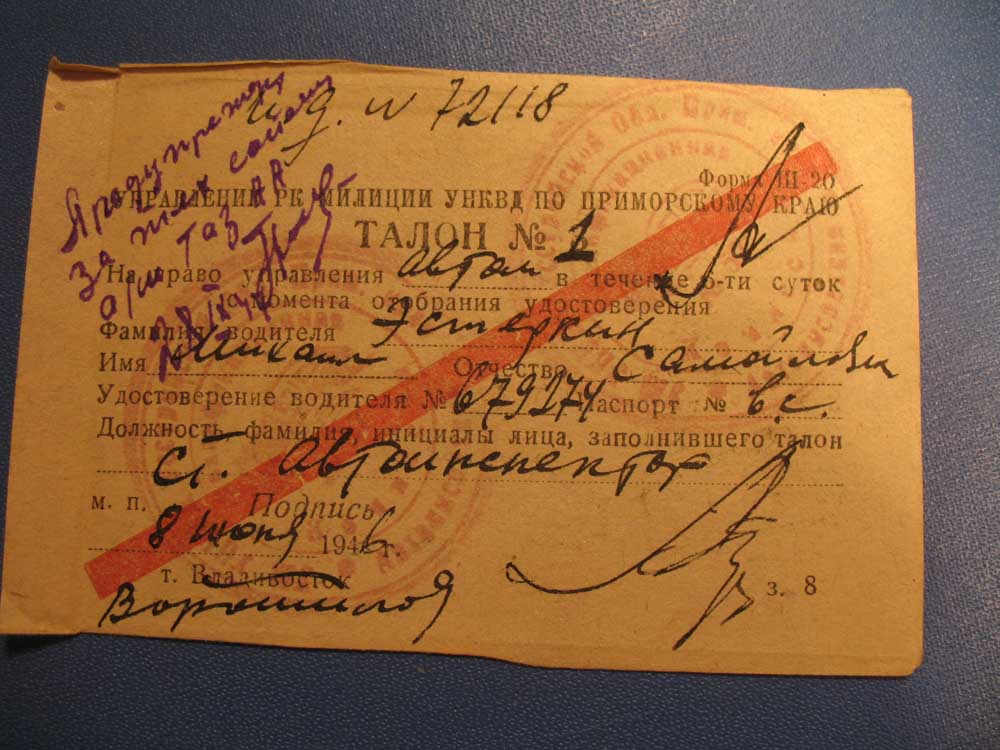 уд. N 72118
Предупрежд
за
28 IX 46
Форма Ш-20
УПРАВЛЕНИЕ РК МИЛИЦИИ УНКВД ПО ПРИМОРСКОМУ КРАЮ
ТАЛОН № 1
На право управления автом в течение 6-ти суток
с момента отобрания удостоверения
Фамилия водителя Эстеркин
Имя Михаил Отчество Самойлович
Удостоверение водителя № 679274 Паспорт № в/с.
Должность, фамилия, инициалы лица, заполнившего талон
Ст. Автоинспектор
м. п. Подпись
8 июня 1946 г.
г. Владивосток з. 8
Ворошилов